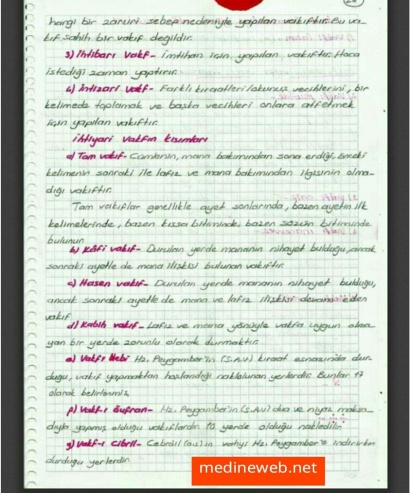 hangi bir zaruri sebep nedeniyle yapılan vakıftır. Bu va-
kıf sahih bir vakıf değildir.
3) İhtibarı Vakf- İmtihan için yapılan vakıftır. Hoca
istediği zaman yaptırır.
4) İntizari vakf- Farklı kıraatleri/okunuş vecihlerini, bir
kelimede toplamak ve başka vecihleri onlara atfetmek
için yapılan vakıftır.
İhtiyari Vakfın Kısımları
a) Tam vakıf- Cümlenin, mana bakımından sona erdiği, önceki
kelimenin sonraki ile lafız ve mana bakımından ilgisinin olma-
dığı vakıftır.
Tam vakıflar genellikle ayet sonlarında, bazen ayetin ilk
kelimelerinde, bazen kıssa bitiminde, bazen sözün bitiminde
bulunur.
b) Kâfi vakıf- Durulan yerde mananın nihayet bulduğu, ancak
sonraki ayetle de mana ilişkisi bulunan vakıftır.
c) Hasen vakıf- Durulan yerde mananın nihayet bulduğu,
ancak sonraki ayetle de mana ve lafız ilişkisi devam eden
vakıf
d) Kabih vakıf- Lafız ve mana yönüyle vakfa uygun olma-
yan bir yerde zorunlu olarak durmaktır.
e) Vakf-ı Nebi Hz. Peygamber'in (S.A.V) kıraat esnasında dur-
duğu, vakıf yapmaktan hoşlandığı nakloluunan yerlerdir. Bunlar 17
olarak belirlenmiş
f) Vakf-ı Gufran- Hz. Peygamber'in (S.A.V) dua ve niyaz maksa-
dıyla yapmış olduğu vakıflardır. 10 yerde olduğu nakledilir.
g) Vakf-ı Cibril- Cebrâil (as)'in vahyi Hz. Peygamber'e indirirken
durduğu yerlerdir.
medineweb.net